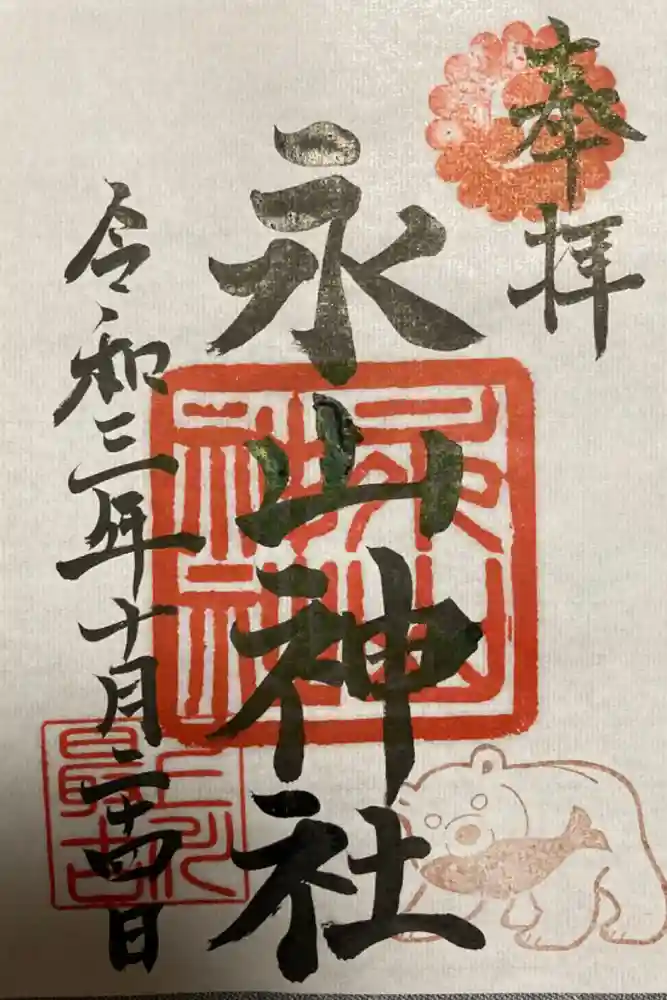 奉拝
永山神社
令和三年十月二十四日